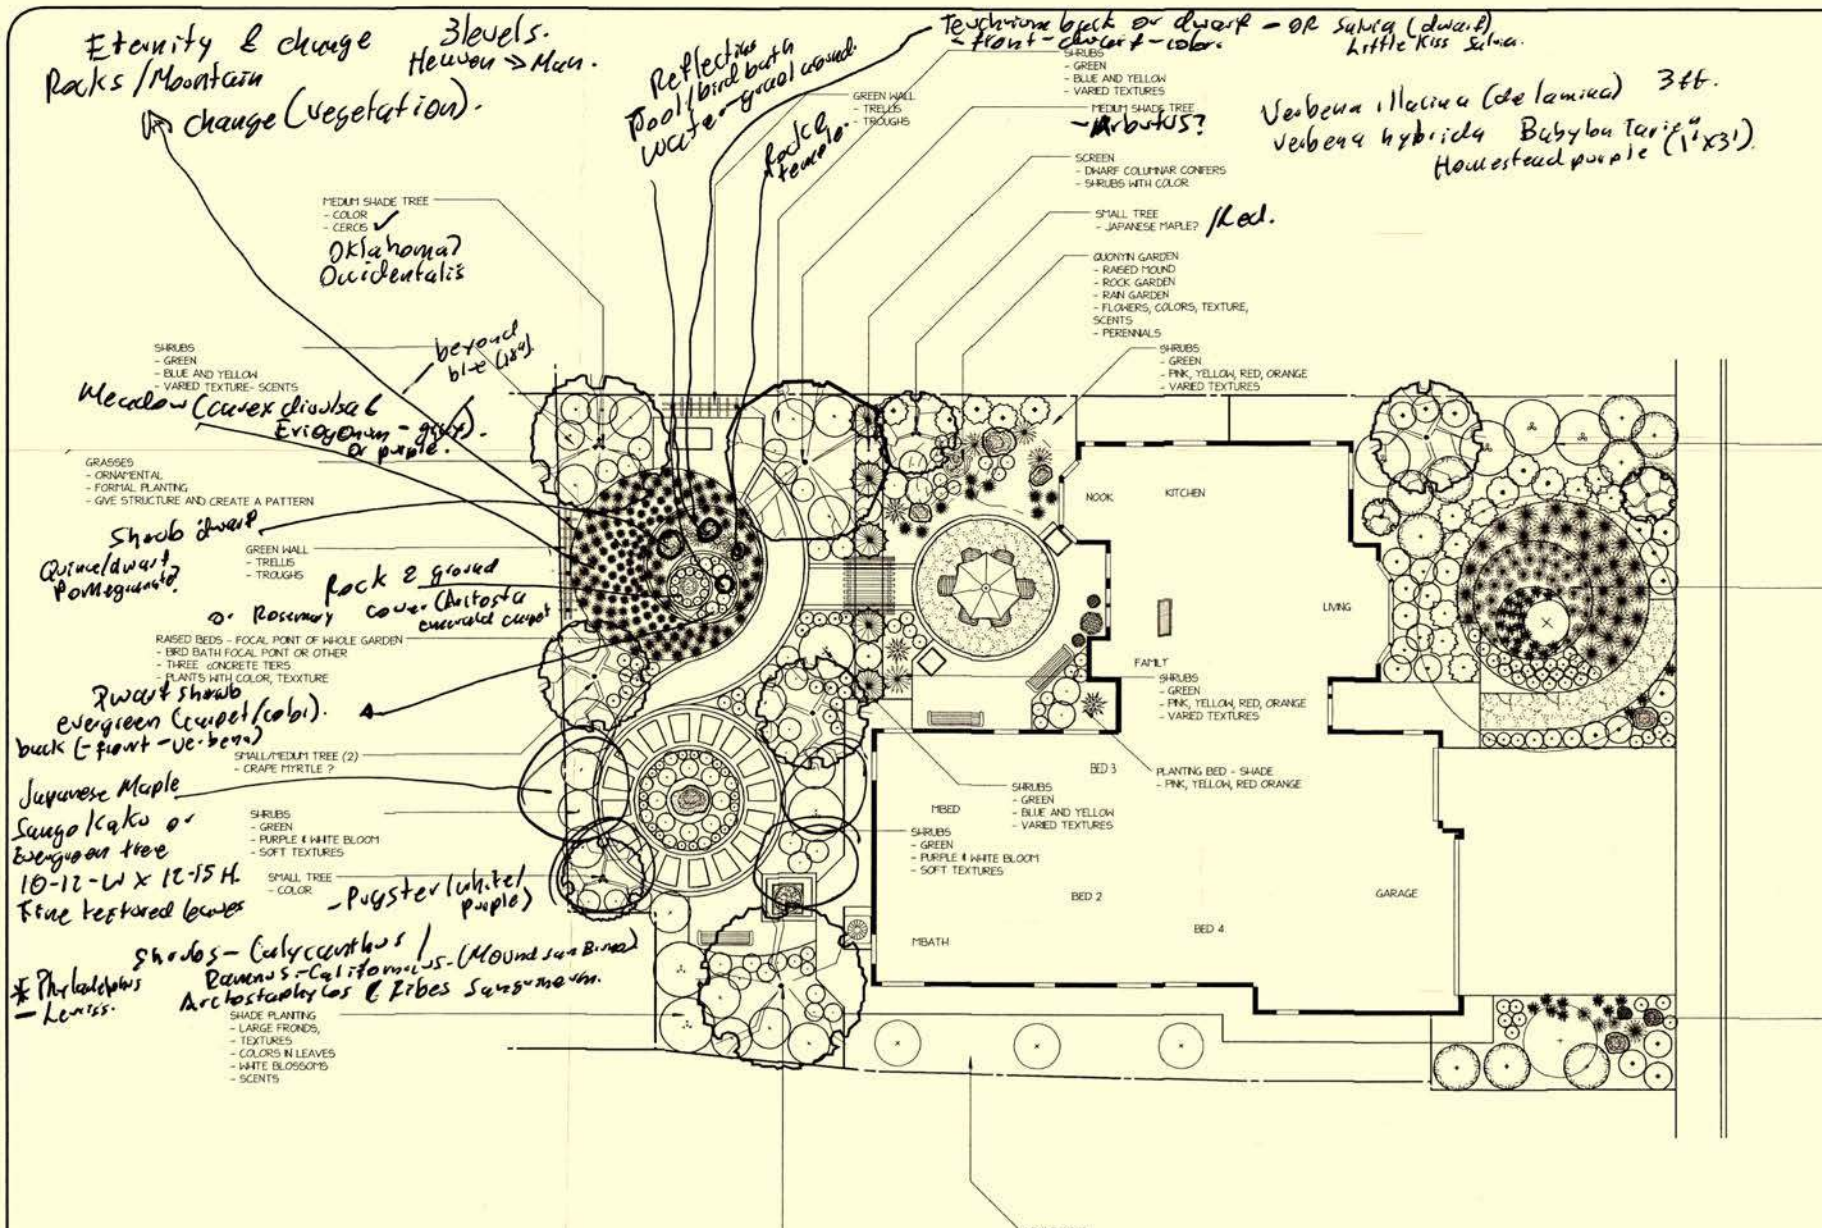 Eternity & change
3 levels.
Rocks/Mountain
Heaven → Man.
change (vegetation).
Reflection
Pool/bird bath
water - gravel around.
Rock @
temple.
back or dwarf - OR Salvia (dwarf)
- front - dwarf - color.
Little Kiss Salvia.
Verbena lilacina (de la mina) 3ft.
Verbena hybrida Babylon
Homestead purple (1'x3').
GREEN WALL
- TRELLIS
- TROUGHS
SHRUBS
- GREEN
- BLUE AND YELLOW
- VARIED TEXTURES
MEDIUM SHADE TREE
- Arbutus?
SCREEN
- DWARF COLUMNAR CONIFERS
- SHRUBS WITH COLOR
SMALL TREE
- JAPANESE MAPLE? /Red.
QUONYIN GARDEN
- RAISED MOUND
- ROCK GARDEN
- RAIN GARDEN
- FLOWERS, COLORS, TEXTURE,
SCENTS
- PERENNIALS
SHRUBS
- GREEN
- PINK, YELLOW, RED, ORANGE
- VARIED TEXTURES
MEDIUM SHADE TREE
- COLOR
- CERCIS ✓
Oklahoma?
Occidentalis
SHRUBS
- GREEN
- BLUE AND YELLOW
- VARIED TEXTURE- SCENTS
beyond
blue (18").
Meadow (carex divulsa &
Eriogonum - grey).
or purple.
GRASSES
- ORNAMENTAL
- FORMAL PLANTING
- GIVE STRUCTURE AND CREATE A PATTERN
Shrub dwarf
Quince/dwarf
Pomegranate?
GREEN WALL
- TRELLIS
- TROUGHS
Rock & ground
cover (Arctosta
emerald carpet
or Rosemary
RAISED BEDS - FOCAL POINT OF WHOLE GARDEN
- BIRD BATH FOCAL POINT OR OTHER
- THREE CONCRETE TIERS
- PLANTS WITH COLOR, TEXXTURE
Dwarf shrub
evergreen (carpet/color).
back (- front - verbena)
SMALL/MEDIUM TREE (2)
- CRAPE MYRTLE ?
Japanese Maple
Sango Kaku or
Evergreen tree
10-12-W x 12-15 H.
Fine textured leaves
SHRUBS
- GREEN
- PURPLE & WHITE BLOOM
- SOFT TEXTURES
SMALL TREE
- COLOR
- Pugster (white/
purple)
Shrubs - Calycanthus /
Californicus - (Mound San Bruno)
Arctostaphylos & Ribes Sanguineum.
* Phyladelphus
- Lewiss.
SHADE PLANTING
- LARGE FRONDS,
- TEXTURES
- COLORS IN LEAVES
- WHITE BLOSSOMS
- SCENTS
NOOK
KITCHEN
LIVING
FAMILY
SHRUBS
- GREEN
- PINK, YELLOW, RED, ORANGE
- VARIED TEXTURES
BED 3
PLANTING BED - SHADE
- PINK, YELLOW, RED ORANGE
SHRUBS
- GREEN
- BLUE AND YELLOW
- VARIED TEXTURES
MBED
SHRUBS
- GREEN
- PURPLE & WHITE BLOOM
- SOFT TEXTURES
BED 2
GARAGE
BED 4
MBATH